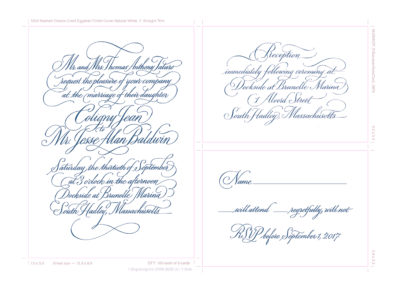 Mr. and Mrs. Thomas Anthony
request the pleasure of your company
at the marriage of their daughter
Coligny Jean
to
Mr. Jesse Alan Baldwin
Saturday, the thirtieth of September
at 5 o'clock in the afternoon
Dockside at Brunelle Marina
South Hadley, Massachusetts
Reception
immediately following ceremony at
Dockside at Brunelle Marina
1 Alvord Street
South Hadley, Massachusetts
Name
will attend regretfully, will not
RSVP before September 1, 2017